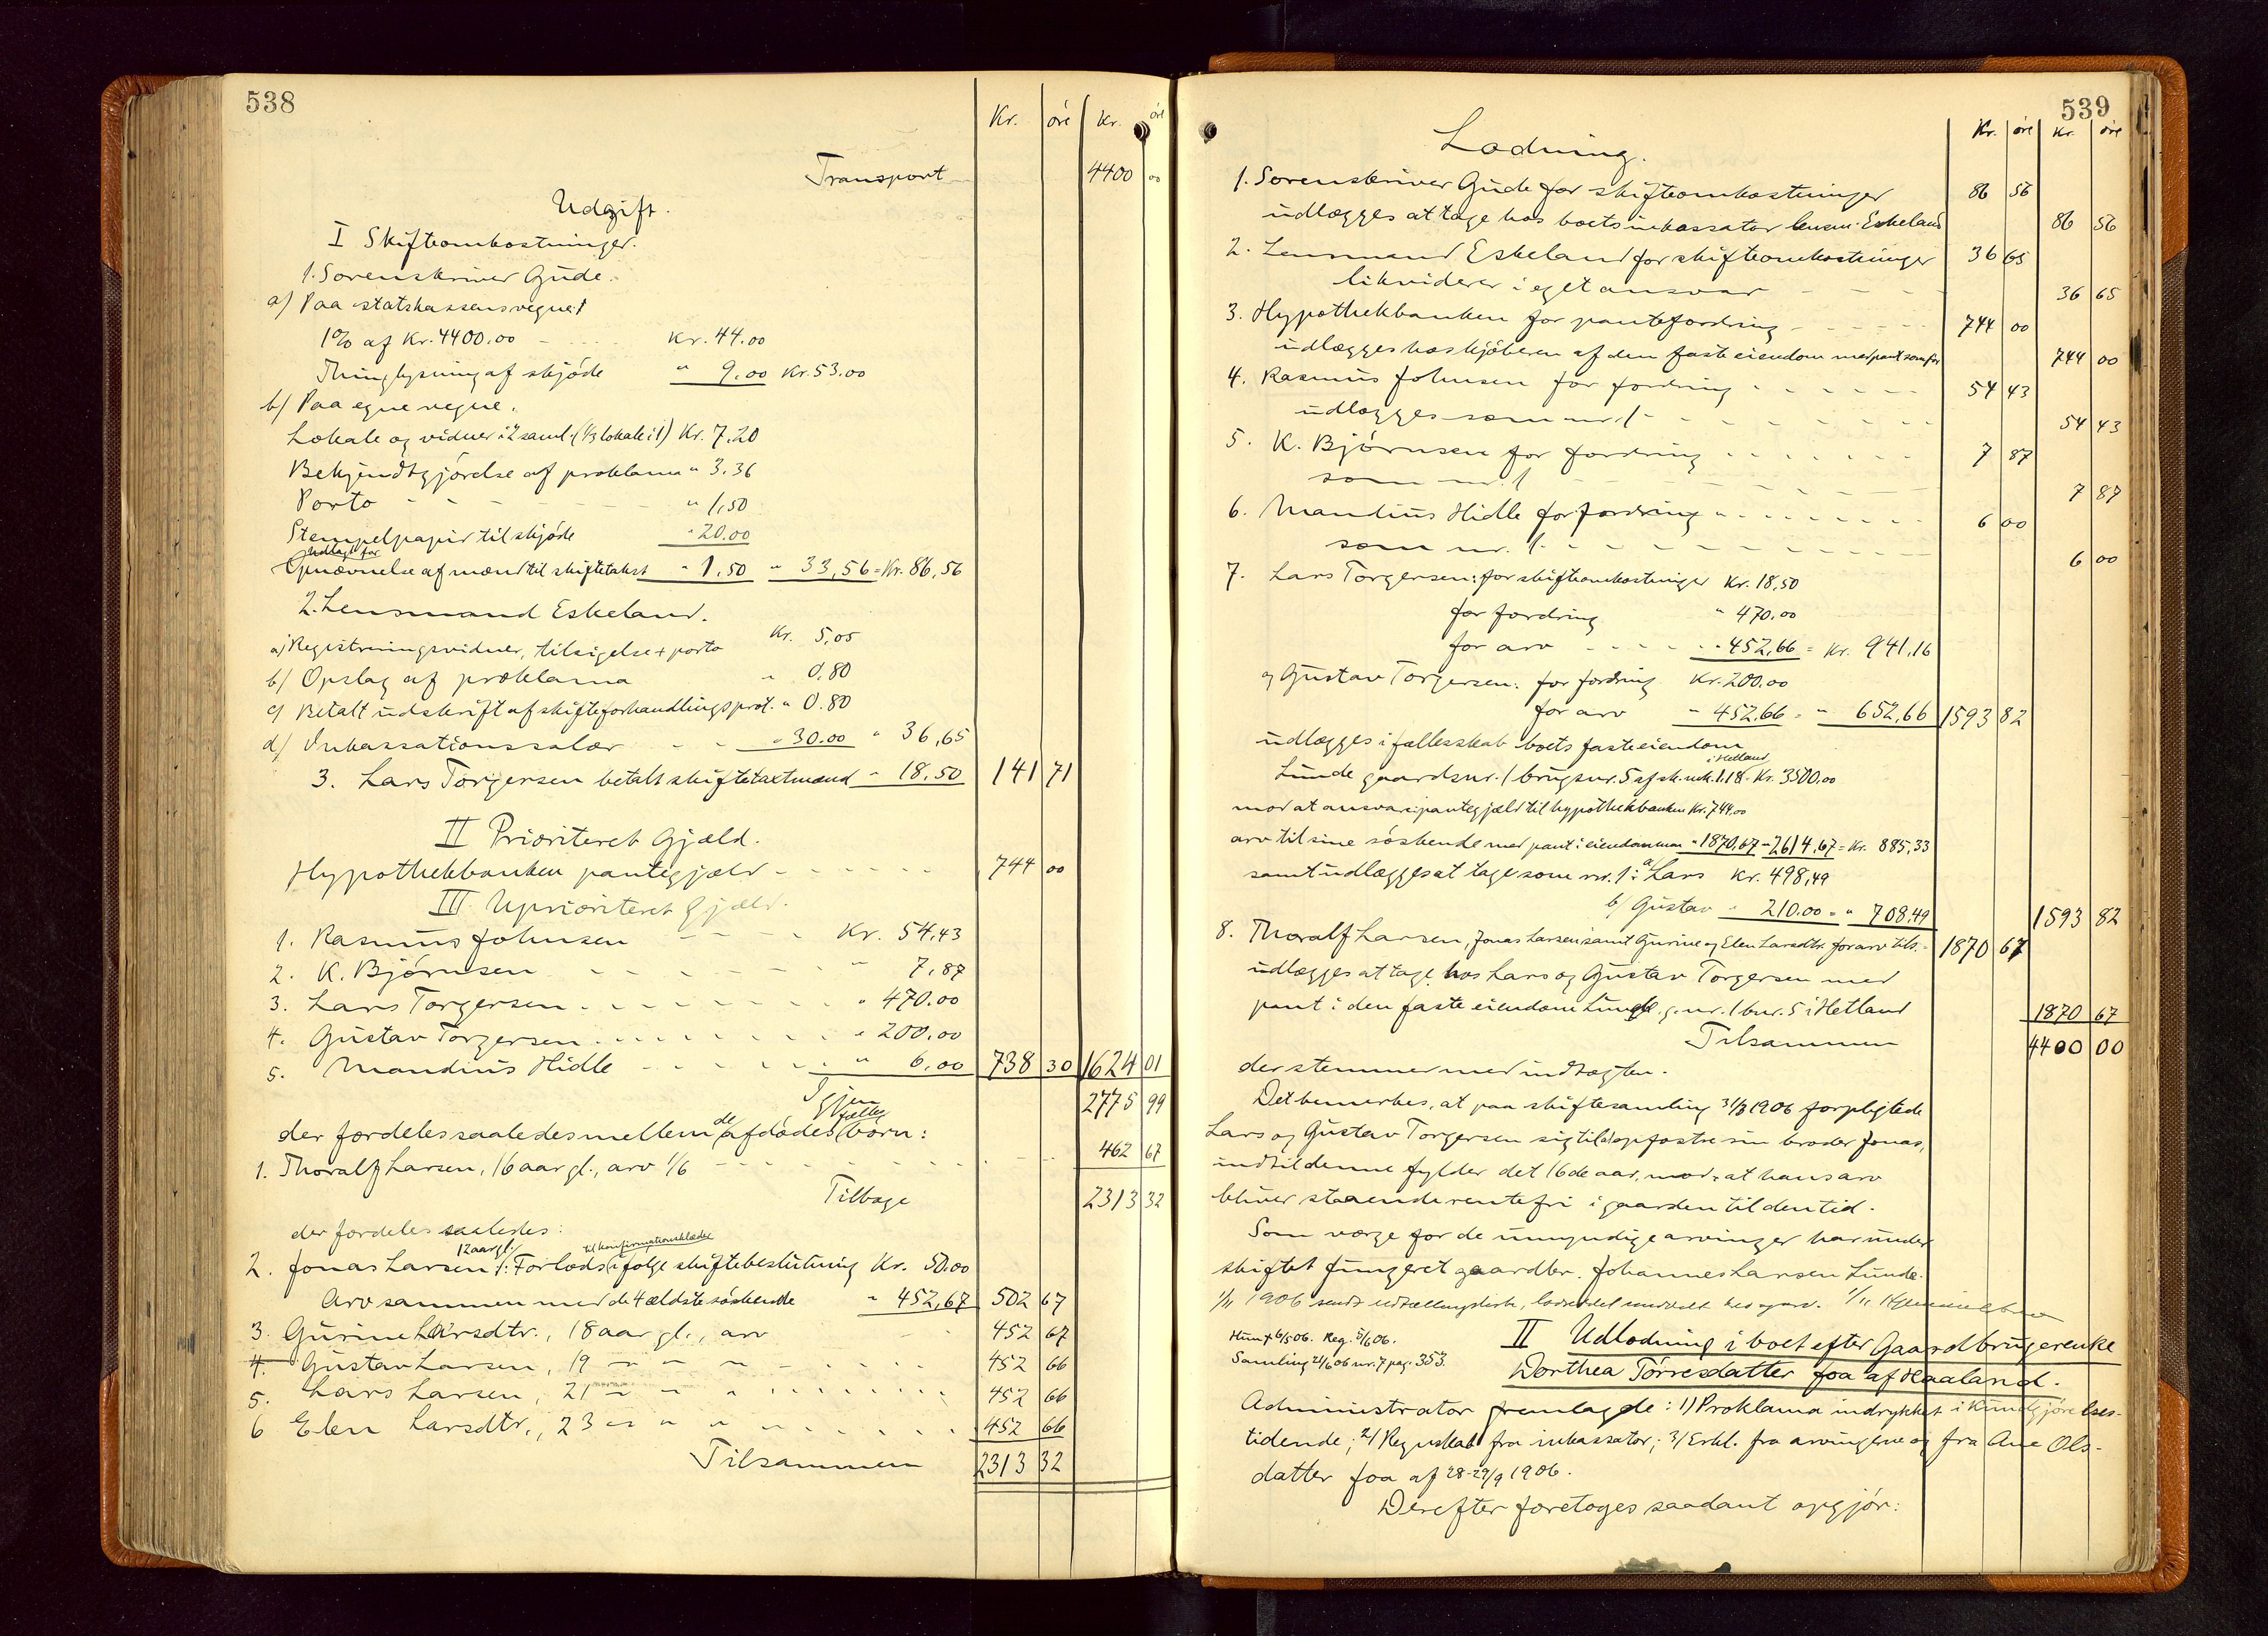 538
Kr. øre Kr. øre
Transport 4400 00
Udgift.
I Skifteomkostninger.
1. Sorenskriver Gude.
a) Paa statskassens vegne:
1% af Kr. 4400.00 - .... Kr. 44.00
Thinglysning af skjøde " 9.00 Kr. 53.00
b) Paa egne vegne.
Lokale og vidner i 2 saml. (1/3 lokale i 1) Kr. 7.20
Bekjendtgjørelse af proklama " 3.36
Porto - - - - " 1,50
Stempelpapir til skjøde " 20.00
Udlagt for
Opnævnelse af mænd til skiftetakst " 1,50 " 33,56 = Kr. 86,56
2. Lensmand Eskeland.
a) Registreringsvidner, tilsigelse + porto Kr. 5,05
b) Opslag af proklama " 0.80
c) Betalt udskrift af skifteforhandlingsprot. " 0.80
d) Inkassationssalær - - " 30.00 " 36,65
3. Lars Torgersen betalt skiftetaxtmænd " 18,50 141 71
II Prioriteret Gjæld.
Hypothekbanken pantegjæld - - - - - - 744 00
III Uprioriteret Gjæld.
1. Rasmus Johnsen - - - - Kr. 54,43
2. K. Bjørnsen - - - - - - " 7,87
3. Lars Torgersen. - - - - - - " 470.00
4. Gustav Torgersen. . . . . . . " 200.00
5. Mandius Hidle - - - - - - " 6,00 738 30 1624 01
Igjen 2775 99
der fordeles saaledes mellem de afdødes fælles børn:
1. Thoralf Larsen, 16 aar gl., arv 1/6 - - - - - - 462 67
Tilbage 2313 32
der fordeles saaledes:
2. Jonas Larsen, 12 aar gl. /: Forlods til konfirmationsklæder ifølge skiftebeslutning Kr. 50.00
Arv sammen med de 4 ældste søskende " 452,67 502 67
3. Gurine Larsdtr., 18 aar gl., arv 452 67
4. Gustav Larsen, 19 " " " - . . . . 452 66
5. Lars Larsen, 21 " " " . . . . . . 452 66
6 Elen Larsdtr., 23 " " " . . . . . 452 66
Tilsammen 2313 32
539
Kr. øre Kr. øre
Lodning.
1. Sorenskriver Gude for skifteomkostninger 86 56
udlægges at tage hos boets inkassator lensm. Eskeland 86 56
2. Lensmand Eskeland for skifteomkostninger 36 65
likviderer i eget ansvar - - - - 36 65
3. Hypothekbanken for pantefordring - - - - 744 00
udlægges hos kjøberen af den faste eiendom med pant som før 744 00
4. Rasmus Johnsen for fordring . . . . . . 54 43
udlægges som nr. 1 - - - - - - - - 54 43
5. K. Bjørnsen for fordring . . . . . . . 7 87
som nr. 1 - - - - - - 7 87
6. Mandius Hidle for fordring . . . . . . . 6 00
som nr. 1. - - - - - - - - - 6 00
7. Lars Torgersen: for skifteomkostninger Kr. 18,50
for fordring " 470.00
for arv - - - - " 452,66 = Kr. 941,16
og Gustav Torgersen: for fordring Kr. 200.00
for arv " 452.66 = " 652,66 1593 82
udlægges i fællesskab boets faste eiendom
Lunde gaardsnr. 1 brugsnr. 5 i Hetland af sk. mk. 1.18 - Kr. 3500.00
mod at ansvare: pantegjæld til hypothekbanken Kr. 744,00
arv til sine søskende med pant i eiendommen " 1870,67 = 2614,67 = Kr. 885,33
samt udlægges at tage som nr. 1: a/ Lars Kr. 498,49
b/ Gustav " 210.00 = " 708,49 1593 82
8. Thoralf Larsen, Jonas Larsen samt Gurine og Elen Larsdtr. for arv tils. - 1870 67
udlægges at tage hos Lars og Gustav Torgersen med
pant i den faste eiendom Lunde g.nr. 1 bnr. 5 i Hetland 1870 67
Tilsammen 4400 00
der stemmer med indtægten.
Det bemerkes, at paa skiftesamling 31/3 1906 forpligtede
Lars og Gustav Torgersen sig til at opfostre sin broder Jonas,
indtil denne fylder det 16de aar, mod at hans arv
bliver staaende rentefri i gaarden til den tid.
Som værge for de umyndige arvinger har under
skiftet fungeret gaardbr. Johannes Larsen Lunde.
1/11 1906 sendt udtællingsliste,
II Udlodning i boet efter Gaardbrugerenke
Hun † 6/5 06. Reg. 5/6 06.
Samling 21/6 06 nr. 7 pag. 353.
Dorthea Tørresdatter foa af Haaland.
Administrator fremlagde: 1) Proklama indrykket i Kundgjørelses-
tidende; 2/ Regnskab fra inkassator; 3/ Erkl. fra arvingerne og fra Ane Ols-
datter foa af 28-29/9 1906.
Derefter foretoges saadant opgjør: